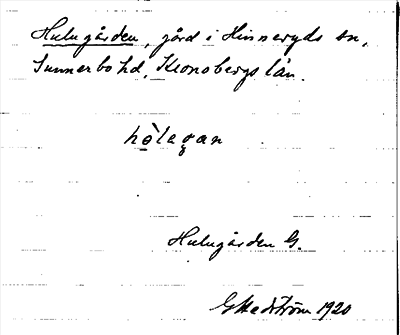 Hulugården, gård i Hinneryds sn,
Sunnerbo hd, Kronobergs län.
hòlagan
Hulugården G.
G Hedström 1920